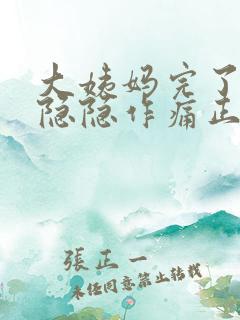 大姨妈完了
隐隐作痛正
張正一
未经同意禁止转载